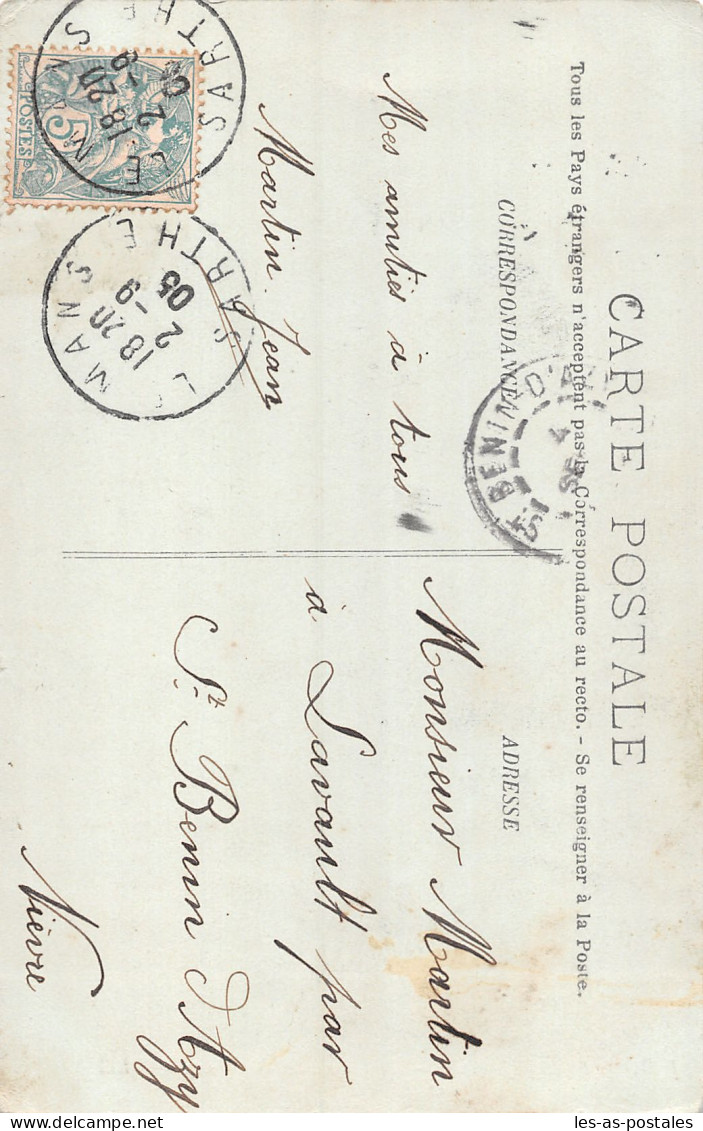 CARTE POSTALE
Tous les Pays étrangers n'acceptent pas la Correspondance au recto. - Se renseigner à la Poste.
CORRESPONDANCE
ADRESSE
Mes amitiés à tous
Martin Jean
Monsieur Martin
à Lavault par
St. Benin d'Azy
Nièvre
5
POSTES
LE MANS
SARTHE
18 20
2 - 9
05
LE MANS
SARTHE
18 20
2 - 9
05
ST BENIN D'
les-as-postales.com